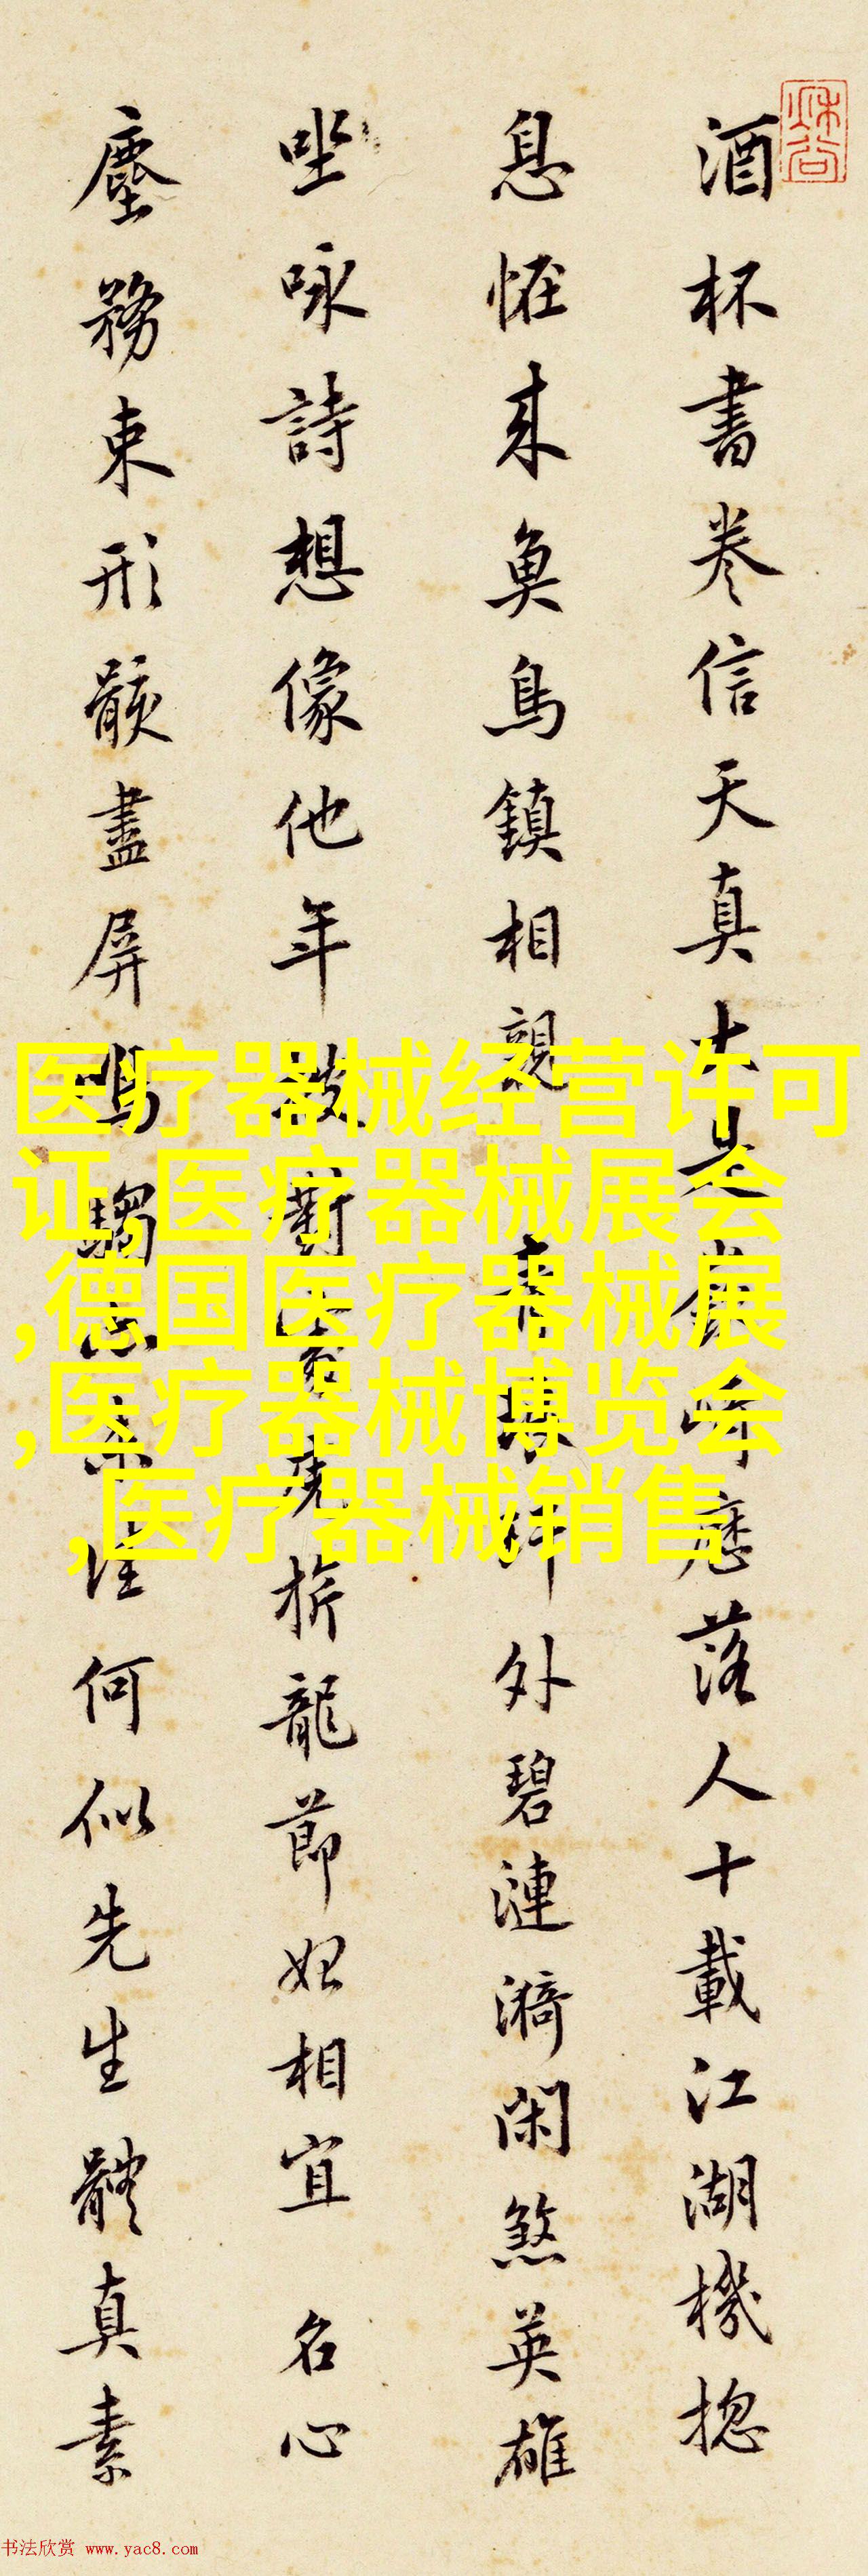 酒杯書卷信天真大落人十載江湖機揔
息恠来魚鳥鎮相親外碧漣漪閑煞英雄
坐咏詩想像他年旂龍節如相宜 名心
塵務束形骸盡屏鳴騶何似先生體真素
医疗器械经营许可
证,医疗器械展会
,德国医疗器械展
,医疗器械博览会
,医疗器械销售
书法欣赏 www.yac8.com